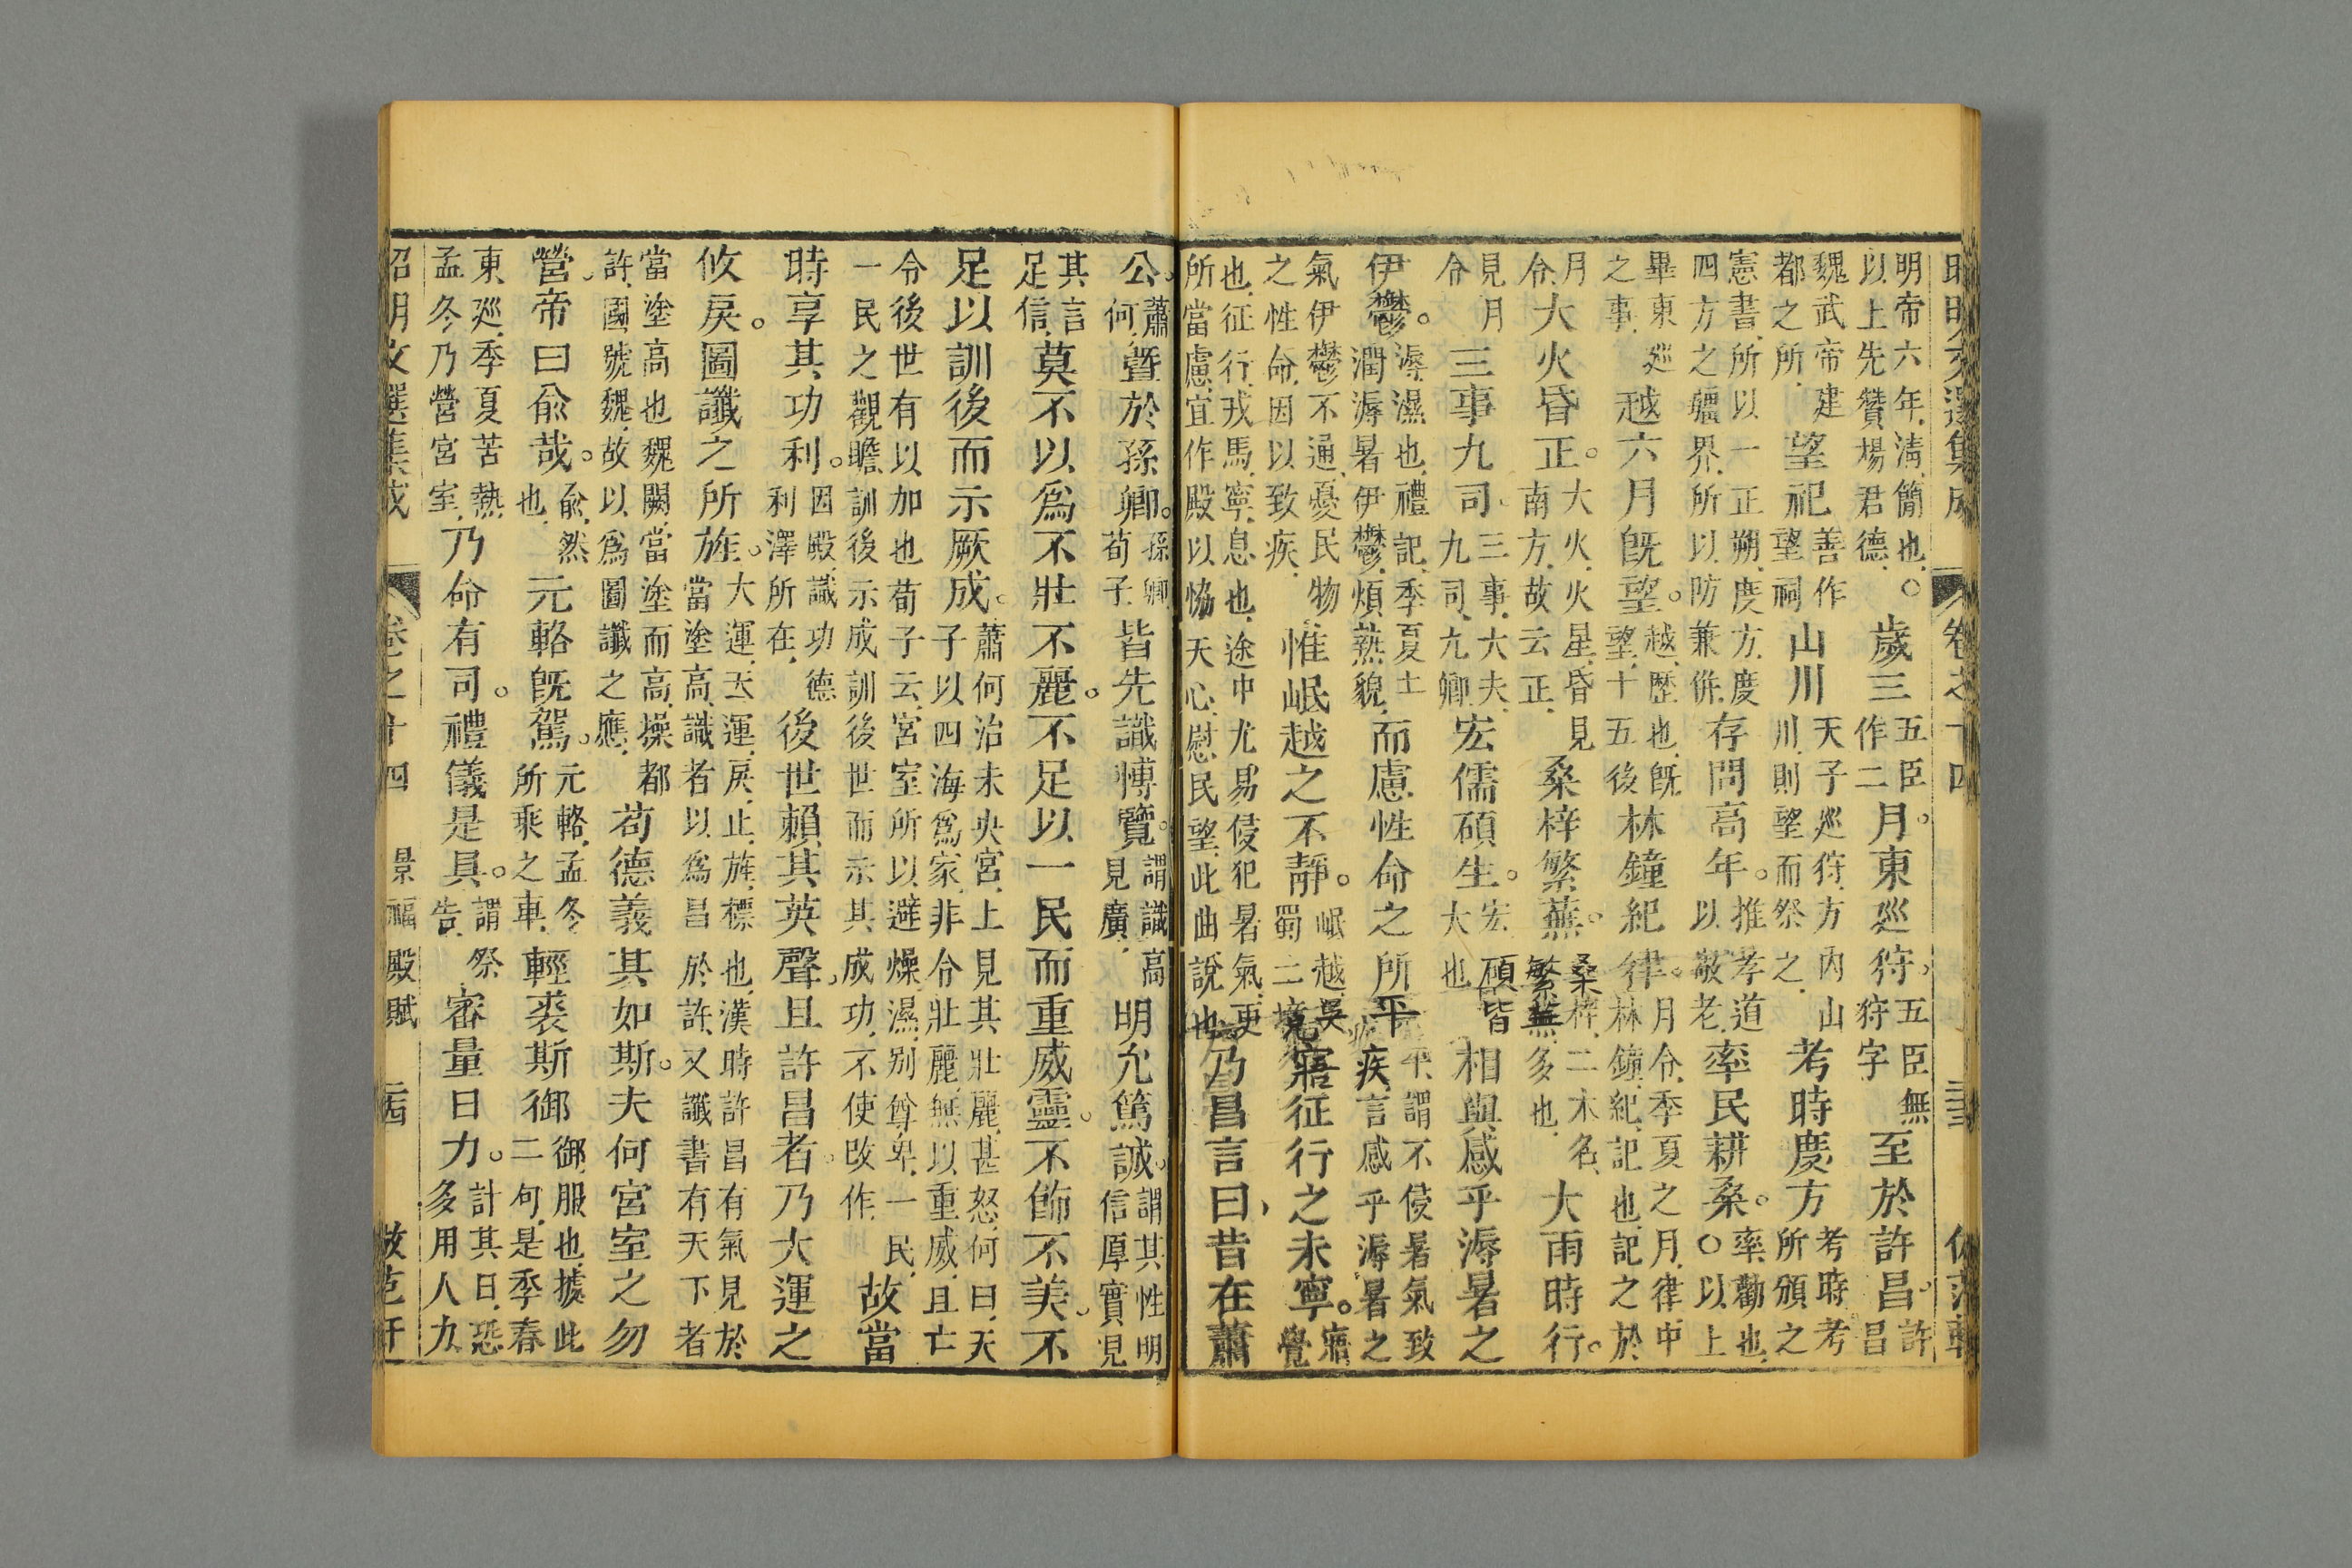 昭明文選集成 卷之十四
明帝六年淸簡也○以上先贊楊君德 歲三五臣作二月。東廵狩。五臣無狩字至於許昌。許昌
魏武帝建都之所望祀善作望祠山川天子廵狩方內山川則望而祭之考時度方考時考所頒之
憲書所以一正朔度方度四方之疆界所以防兼倂存問高年。推孝道以敬老率民耕桑。率勸也○以上
畢東廵之事越六月旣望。越歷也旣望十五後林鐘紀律。月令季夏之月律中林鐘紀記也記之於
月令大火昏正。大火火星昏見南方故云正桑梓繁蕪。桑梓二木名繁蕪多也大雨時行。
見月令三事九司三事大夫九司九卿宏儒碩生。宏碩皆大也相與感乎溽暑之
伊鬱。溽濕也禮記季夏土潤溽暑伊鬱煩熱貌而慮性命之所平平謂不侵暑氣致疾言感乎溽暑之
氣伊鬱不通憂民物之性命因以致疾惟岷越之不靜。岷越吳蜀二境寤征行之未寧。寤覺
也征行戎馬寧息也途中尤易侵犯暑氣更所當慮宜作殿以恊天心慰民望此曲說也乃昌言曰昔在蕭
公。蕭何曁於孫卿。孫卿荀子皆先識博覽。謂識高見廣明允篤誠。謂其性明信厚實見
其言足信莫不以爲不壯不麗。不足以一民而重威靈。不飾不美。不
足以訓後而示厥成。蕭何治未央宮上見其壯麗甚怒何曰天子以四海爲家非令壯麗無以重威且亡
令後世有以加也荀子云宮室所以避燥濕別尊卑一民一民之觀瞻訓後示成訓後世而示其成功不使改作故當
時享其功利。因殿識功德利澤所在後世賴其英聲。且許昌者。乃大運之
攸戾。圖讖之所旌。大運天運戾止旌標也漢時許昌有氣見於當塗高識者以爲昌於許又讖書有天下者
當塗高也魏闕當塗而高操都許國號魏故以爲圖讖之應苟德義其如斯。夫何宮室之勿
營。帝曰俞哉。俞然也元輅旣駕。元輅孟冬所乘之車輕裘斯御御服也據此二句是季春
東廵季夏苦熱孟冬乃營宮室乃命有司。禮儀是具。謂祭告審量日力。計其日恐多用人力
昭明文選集成 卷之十四 景福殿賦 仿范軒